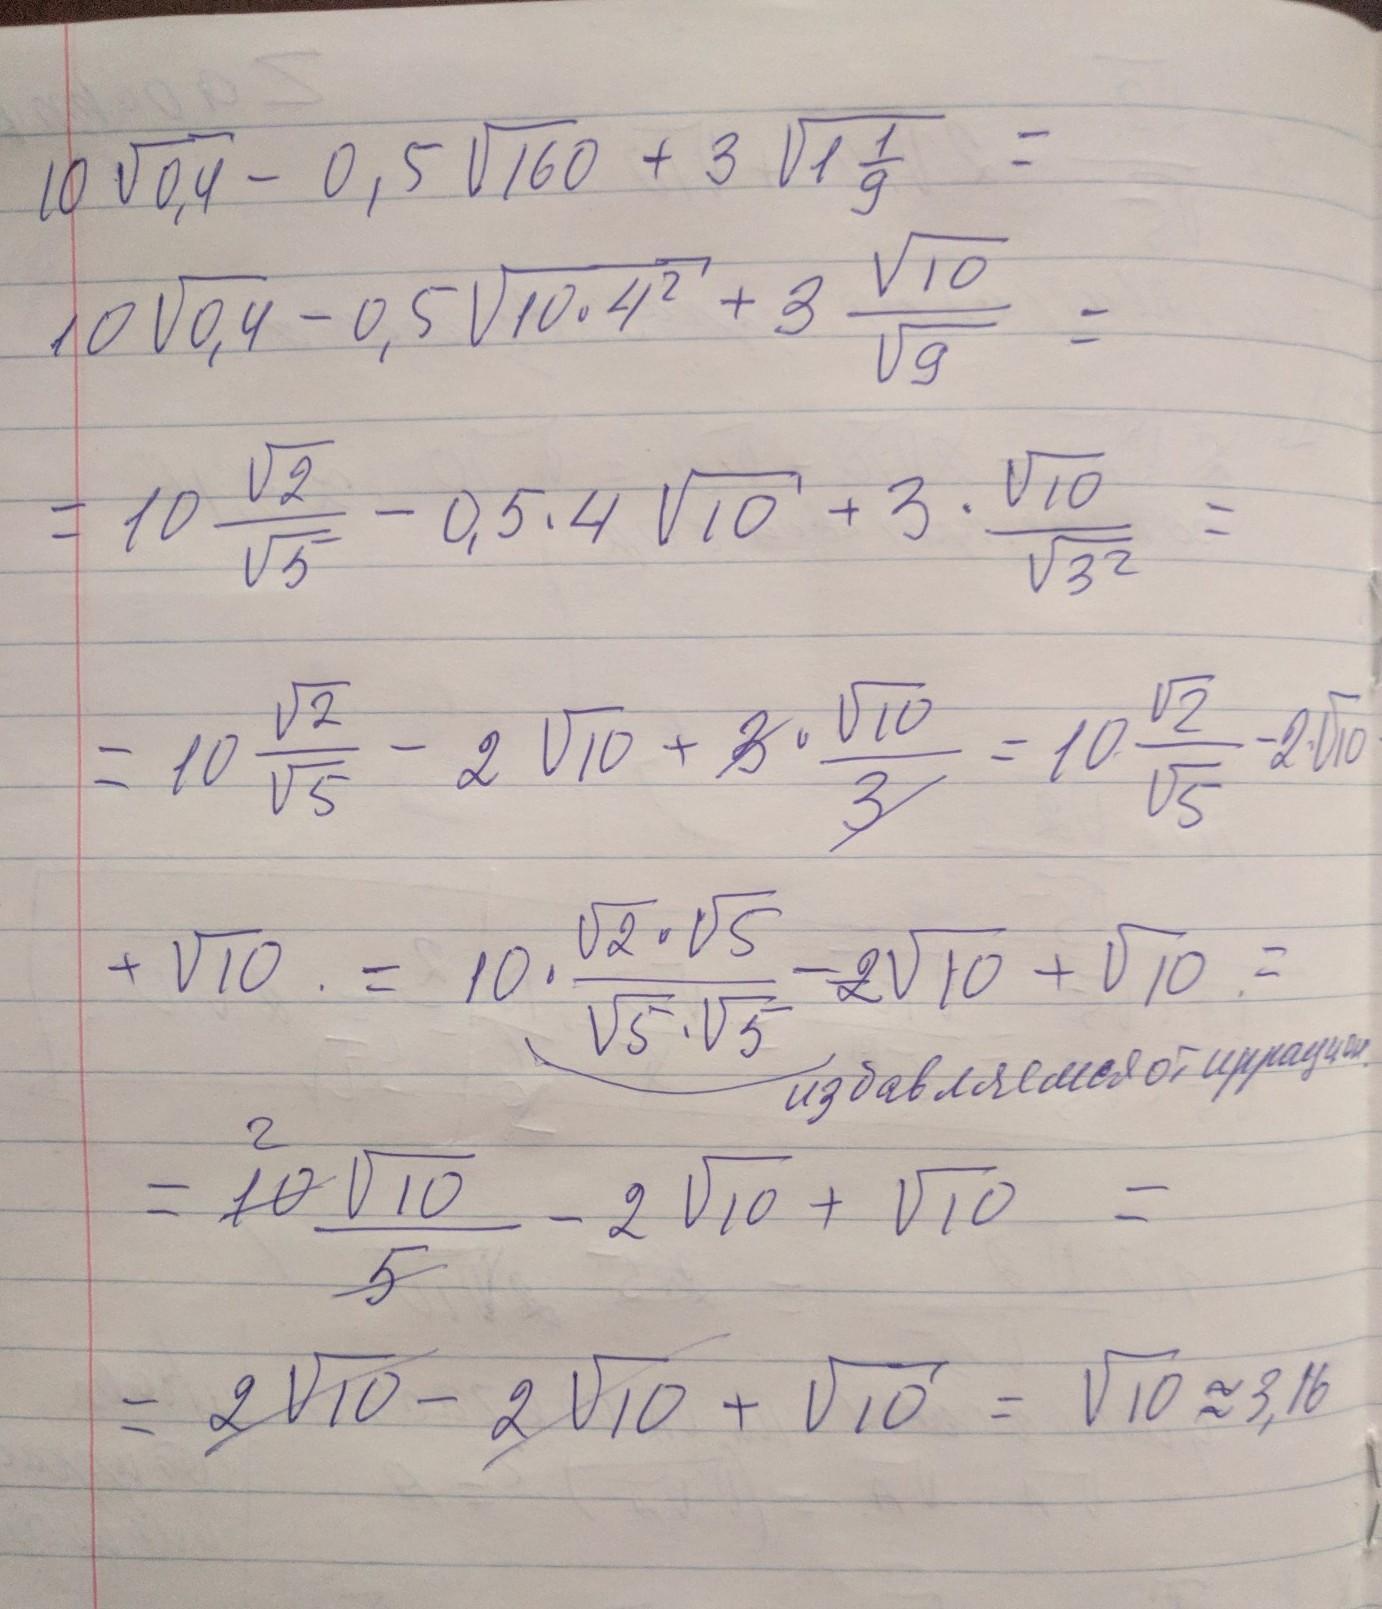 10√0,4 − 0,5√160 + 3√1 1/9 =
10√0,4 − 0,5√10·4² + 3 √10/√9 =
= 10 √2/√5 − 0,5·4 √10 + 3 · √10/√3² =
= 10 √2/√5 − 2 √10 + 3 · √10/3 = 10 √2/√5 − 2·√10
+ √10 . = 10 · √2·√5/√5·√5 − 2√10 + √10 =
избавляемся от иррацион.
2
= 10 √10/5 − 2 √10 + √10 =
= 2√10 − 2√10 + √10 = √10 ≈ 3,16